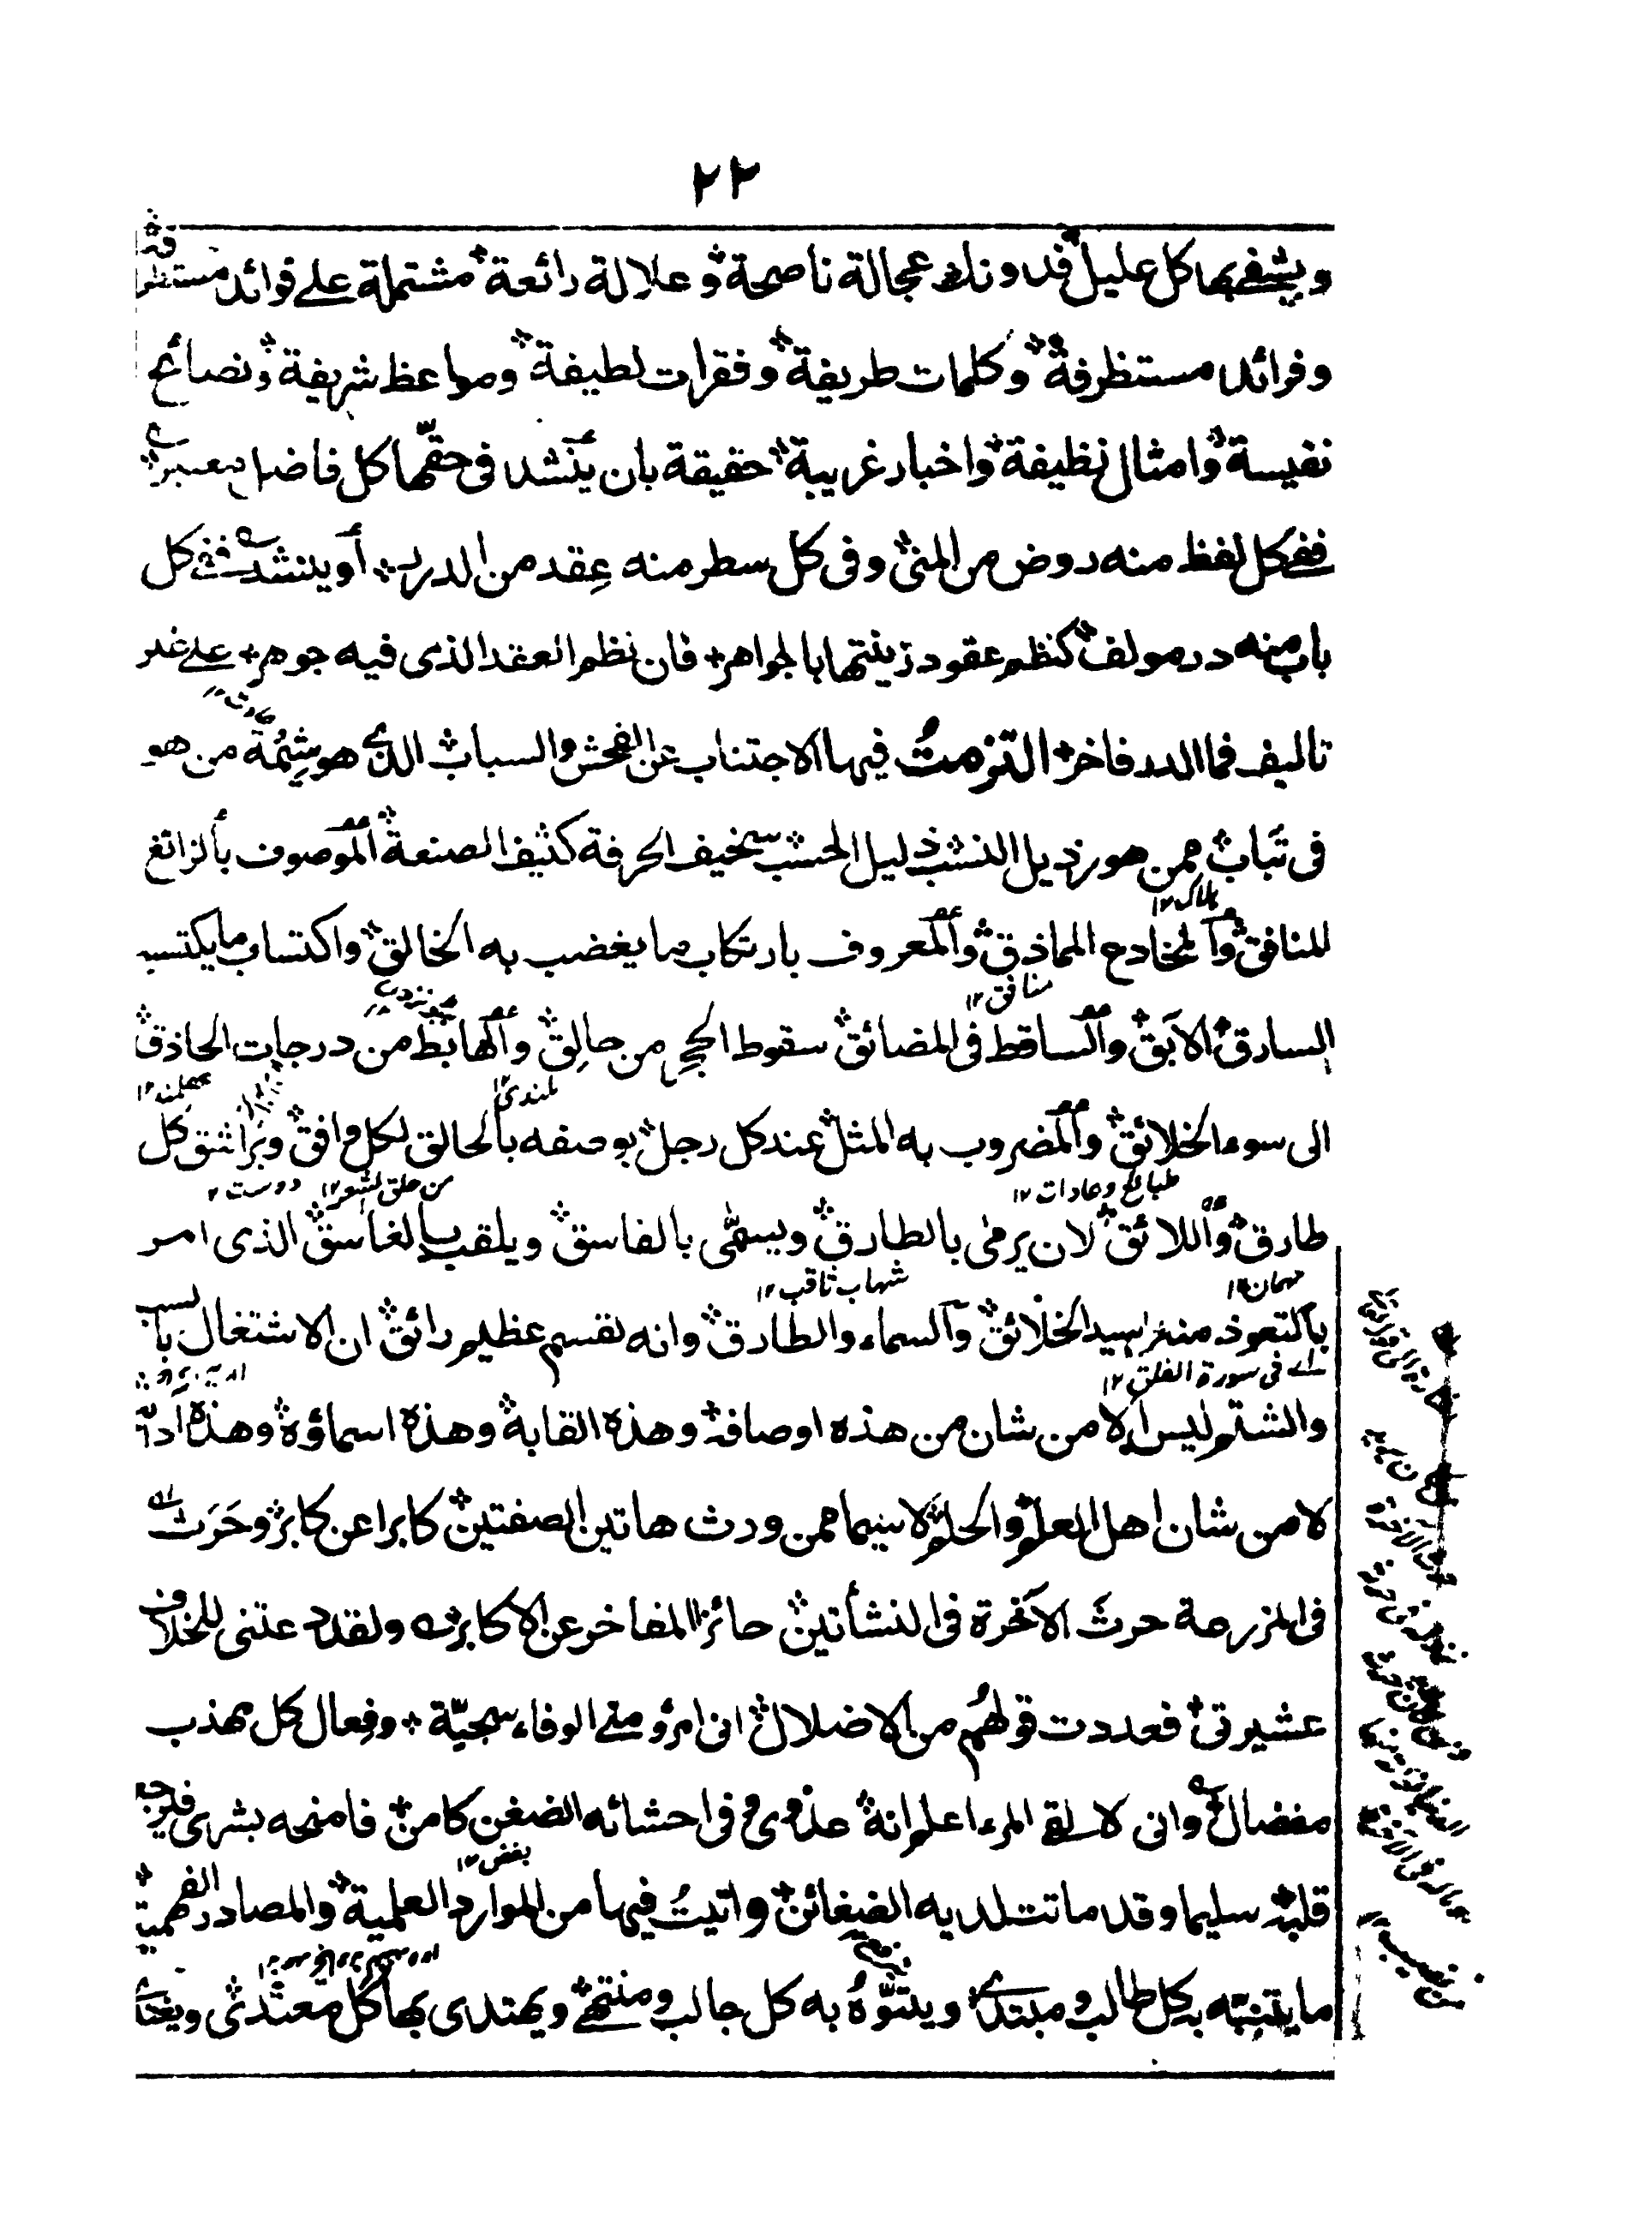 ٢٢
ويشفى بها كل عليل فدونك عجالة ناصحة وعلالة رائعة مشتملة على فوائد
وفرائد مستظرفة وكلمات طريفة وفقرات لطيفة ومواعظ شريفة ونصائح
نفيسة وامثال نظيفة واخبار غريبة حقيقة بان ينشد فى حقها كل فاضل
ففى كل لفظ منه روض من المنى وفى كل سطر منه عقد من الدرر أو ينشد ففى كل
باب منه در مولف كنظم عقود زينتها بالجواهر فان نظم العقد الذى فيه جوهر على غير
تاليف فما الدر فاخر التزمتُ فيها الاجتناب عن الفحش والسباب الذى هو شِيْمَة من هو
فى تَباب ممن هو رذيل النشب ذليل الحسب سخيف الحرفة كثيف الصنعة الموصوف بالزائغ
هلاك ١٢
للنافق والمخادع المماذق والمعروف بارتكاب ما يغضب به الخالق واكتساب ما يكتسبه
منافق ١٢
السارق الآبق والساقط فى المضائق سقوط الحجر من حالق والهابط من درجات الحاذق
بلندى ١٢
الى سوء الخلائق والمضروب به المثل عند كل رجل بوصفه بالحالق لكل موافق وبراشق كل
طبائع وعادات ١٢ من حلق الشعر ١٢ دوست ١٢
طارق واللائق لان يرمى بالطارق ويسمى بالفاسق ويلقب بالغاسق الذى امر
مهمان ١٢ شهاب ثاقب ١٢
بالتعوذ منه سيد الخلائق والسماء والطارق وانه لقسم عظيم رائق ان الاشتغال بالسب
اے فى سورة الفلق ١٢
والشتم ليس الا من شان من هذه اوصافه وهذه القابه وهذه اسماؤه وهذه
لا من شان اهل العلم والحلم لا سيما ممن ورث هاتين الصفتين كابرا عن كابر وحَرَث
فى المزرعة حرث الآخرة فى النشأتين حائز المفاخر عن الاكابر ولقد دعتنى للخلاف
عشيرتى فعددت قولهم من الاضلال انى امرؤ منى الوفاء سجيّة وفعال كل مهذب
مفضال وانى لالقى المرء اعلم انه عدوى وفى احشائه الضغن كامن فامنحه بشرى فيرجع
بغض ١٢
قلبه سليما وقد ماتت لديه الضغائن واتيتُ فيها من الموارد العلمية والمصادر الفهمية
ما يتنبّه به كل طالب ومبتدى ويتنوّه به كل جالب ومنتهى ويهتدى بها كل معتدى